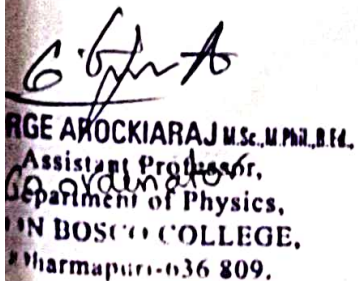 RGE AROCKIARAJ M.Sc.,M.Phil.,B.Ed.,
Assistant Professor,
Co-ordinator
Department of Physics,
ON BOSCO COLLEGE,
Dharmapuri-636 809.